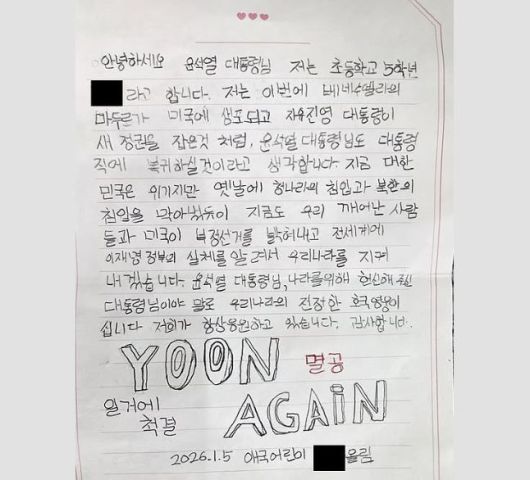 안녕하세요 윤석열 대통령님 저는 초등학교 5학년
라고 합니다. 저는 이번에 베네수엘라의
마두로가 미국에 생포되고 자유진영 대통령이
새 정권을 잡은것 처럼, 윤석열 대통령님도 대통령
직에 복귀하실것이라고 생각합니다. 지금 대한
민국은 위기지만 옛날에 청나라의 침입과 북한의
침입을 막아냈듯이 지금도 우리 깨어난 사람
들과 미국이 부정선거를 밝혀내고 전세계에
이재명 정부의 실체를 알려서 우리나라를 지켜
내겠습니다. 윤석열 대통령님, 나라를위해 헌신해 주신
대통령님이야 말로 우리나라의 진정한 호국영웅이
십니다 저희가 항상응원하고 있습니다. 감사합니다.
YOON 멸공
일거에 AGAIN
척결
2026.1.5 애국어린이 올림